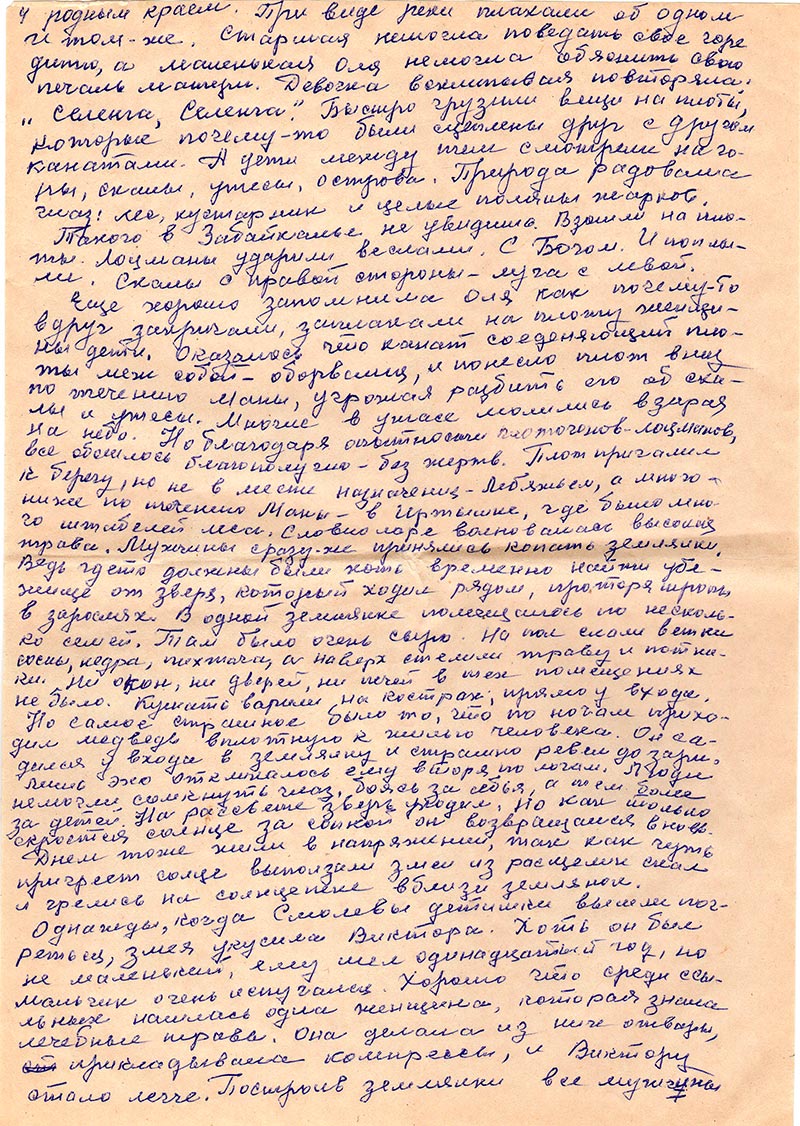 4 родным краем. При виде реки плакали об одном
и том-же. Старшая немогла поведать свое горе
дитю, а маленькая Оля немогла обяснить свою
печаль матери. Девочка всхлипывая повторяла:
„Селенга, Селенга". Быстро грузили вещи на плоты,
которые почему-то были сцеплены друг с другом
канатами. А дети между тем смотрели на го-
ры, скалы, утесы, острова. Природа радовала
глаз: лес, кустарник и целые поляны жарков.
Такого в Забайкалье не увидишь. Взошли на пло-
ты. Лоцманы ударили веслами. С Богом. И поплы-
ли. Скалы с правой стороны - луга с левой.
Еще хорошо запомнила Оля как почему-то
вдруг закричали, заплакали на плоту женщи-
ны дети. Оказалось что канат соеденяющий пло-
ты меж собой - оборвался, и понесло плот вниз
по течению Маны, угрожая разбить его об ска-
лы и утесы. Многие в ужасе молились взирая
на небо. Но благодаря опытности плотогонов-лоцманов,
все обошлось благополучно - без жертв. Плот пригалил
к берегу, но не в месте назначения - Лебяжьем, а много-
ниже по течению Маны - в Иртышке, где было мно-
го штабелей леса. Словно море волновалась высокая
трава. Мужчины сразу-же принялись копать землянки.
Ведь гдето должны были хоть временно найти убе-
жище от зверя, который ходил рядом, проторя тропы
в зарослях. В одной землянке помещалось по несколь-
ко семей. Там было очень сыро. На пол стлали ветки
сосны, кедра, пихтача, а наверх стелили траву и потни-
ки. Ни окон, ни дверей, ни печей в тех помещениях
не было. Кушать варили на кострах, прямо у входа.
Но самое страшное было то, что по ночам прихо-
дил медведь вплотную к жилью человека. Он са-
дился у входа в землянку и страшно ревел до зари.
Лишь эхо откликалось ему вторя по логам. Люди
немогли сомкнуть глаз, боясь за себя, а тем более
за детей. На рассвете зверь уходил. Но как только
скроется солнце за сопкой он возвращался вновь.
Днем тоже жили в напряжении, так как чуть
пригреет солце выползали змеи из расщелин скал
и грелись на солнцепеке вблизи землянок.
Однажды, когда Смолевы детишки вышли пог-
реться, змея укусила Виктора. Хоть он был
не маленький, ему шел одинадцатый год, но
мальчик очень испугался. Хорошо что среди ссы-
льных нашлась одна женщина, которая знала
лечебные травы. Она делала из них отвары,
прикладывала компрессы, и Виктору
стало легче. Построив землянки все мужчины